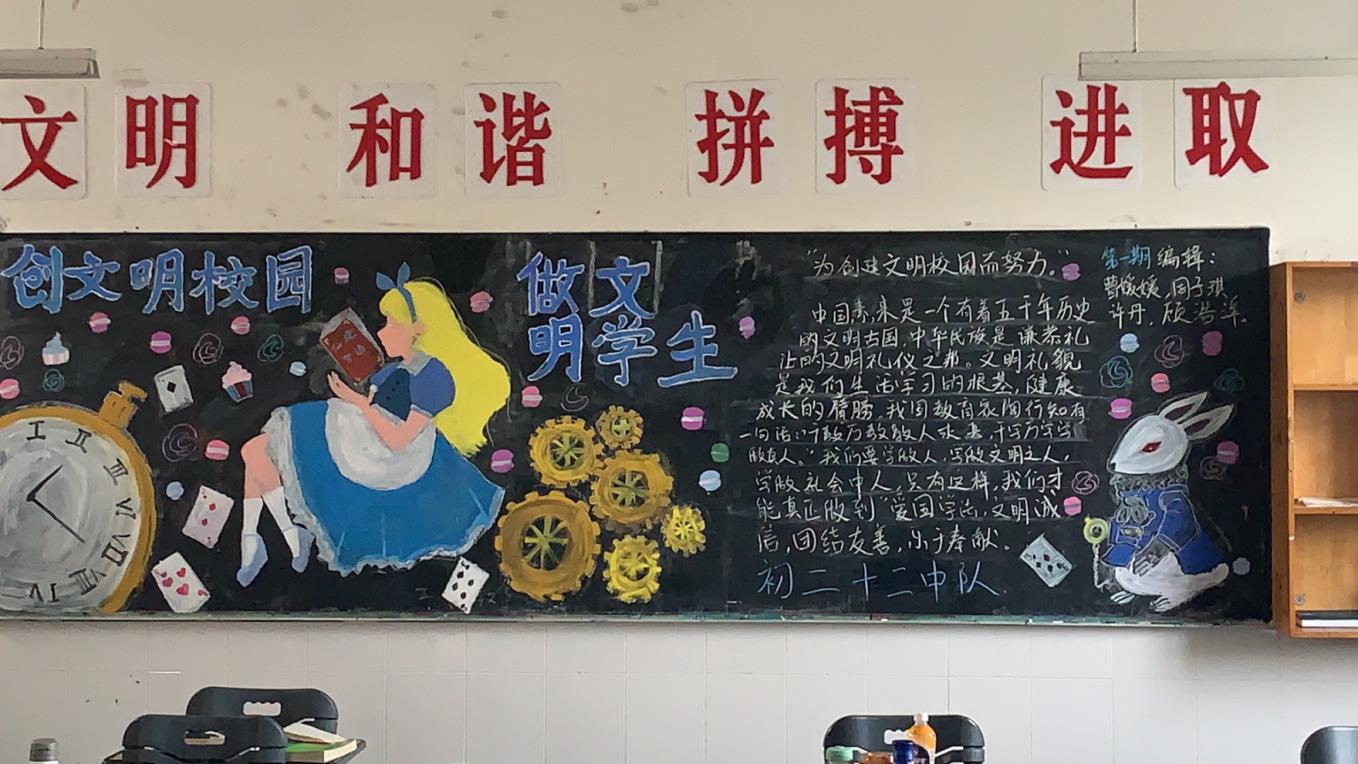 文明 和谐 拼搏 进取
创文明校园
做文
明学生
"为创建文明校园而努力。"
中国素来是一个有着五千年历史
的文明古国,中华民族是谦恭礼
让的文明礼仪之邦。文明礼貌
是我们生活学习的根基,健康
成长的臂膀。我国教育家陶行知有
一句话:"千教万教教人求真,千学万学学
做真人。"我们要学做人,学做文明之人,
学做社会中人。只有这样,我们才
能真正做到"爱国学法,文明诚
信,团结友善,乐于奉献。
初二十二中队
第一期编辑:
曹媛媛,周子琪
许丹,
I II III V VI VII VIII IV